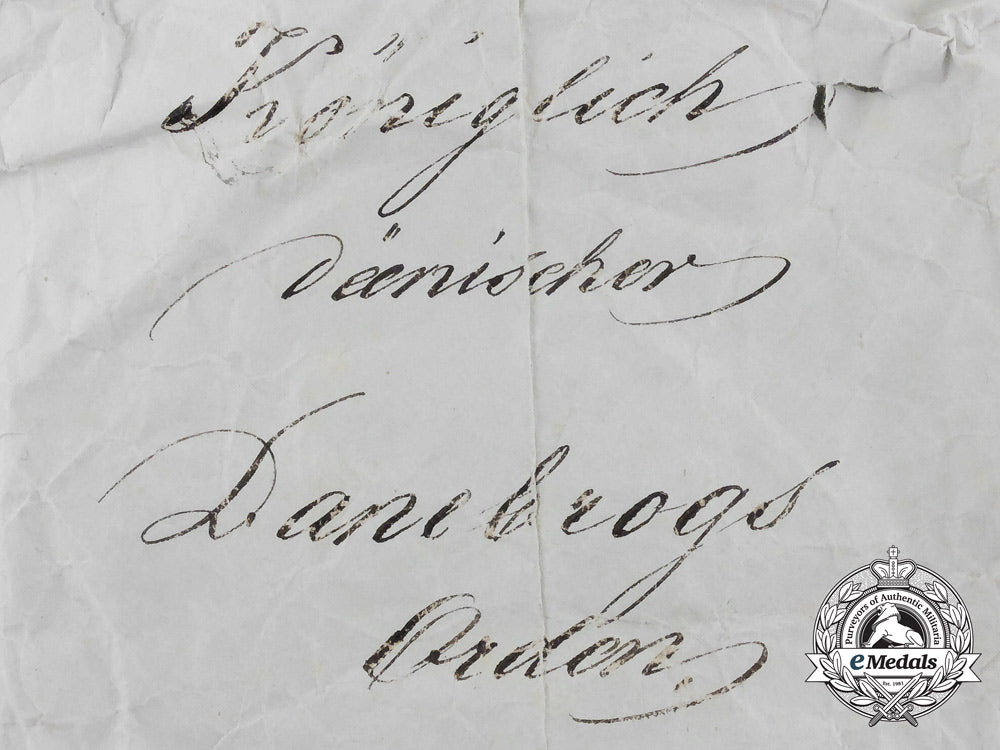 Königlich
däenischer
Danebrogs
Orden
Purveyors of Authentic Militaria
eMedals
Est. 1981